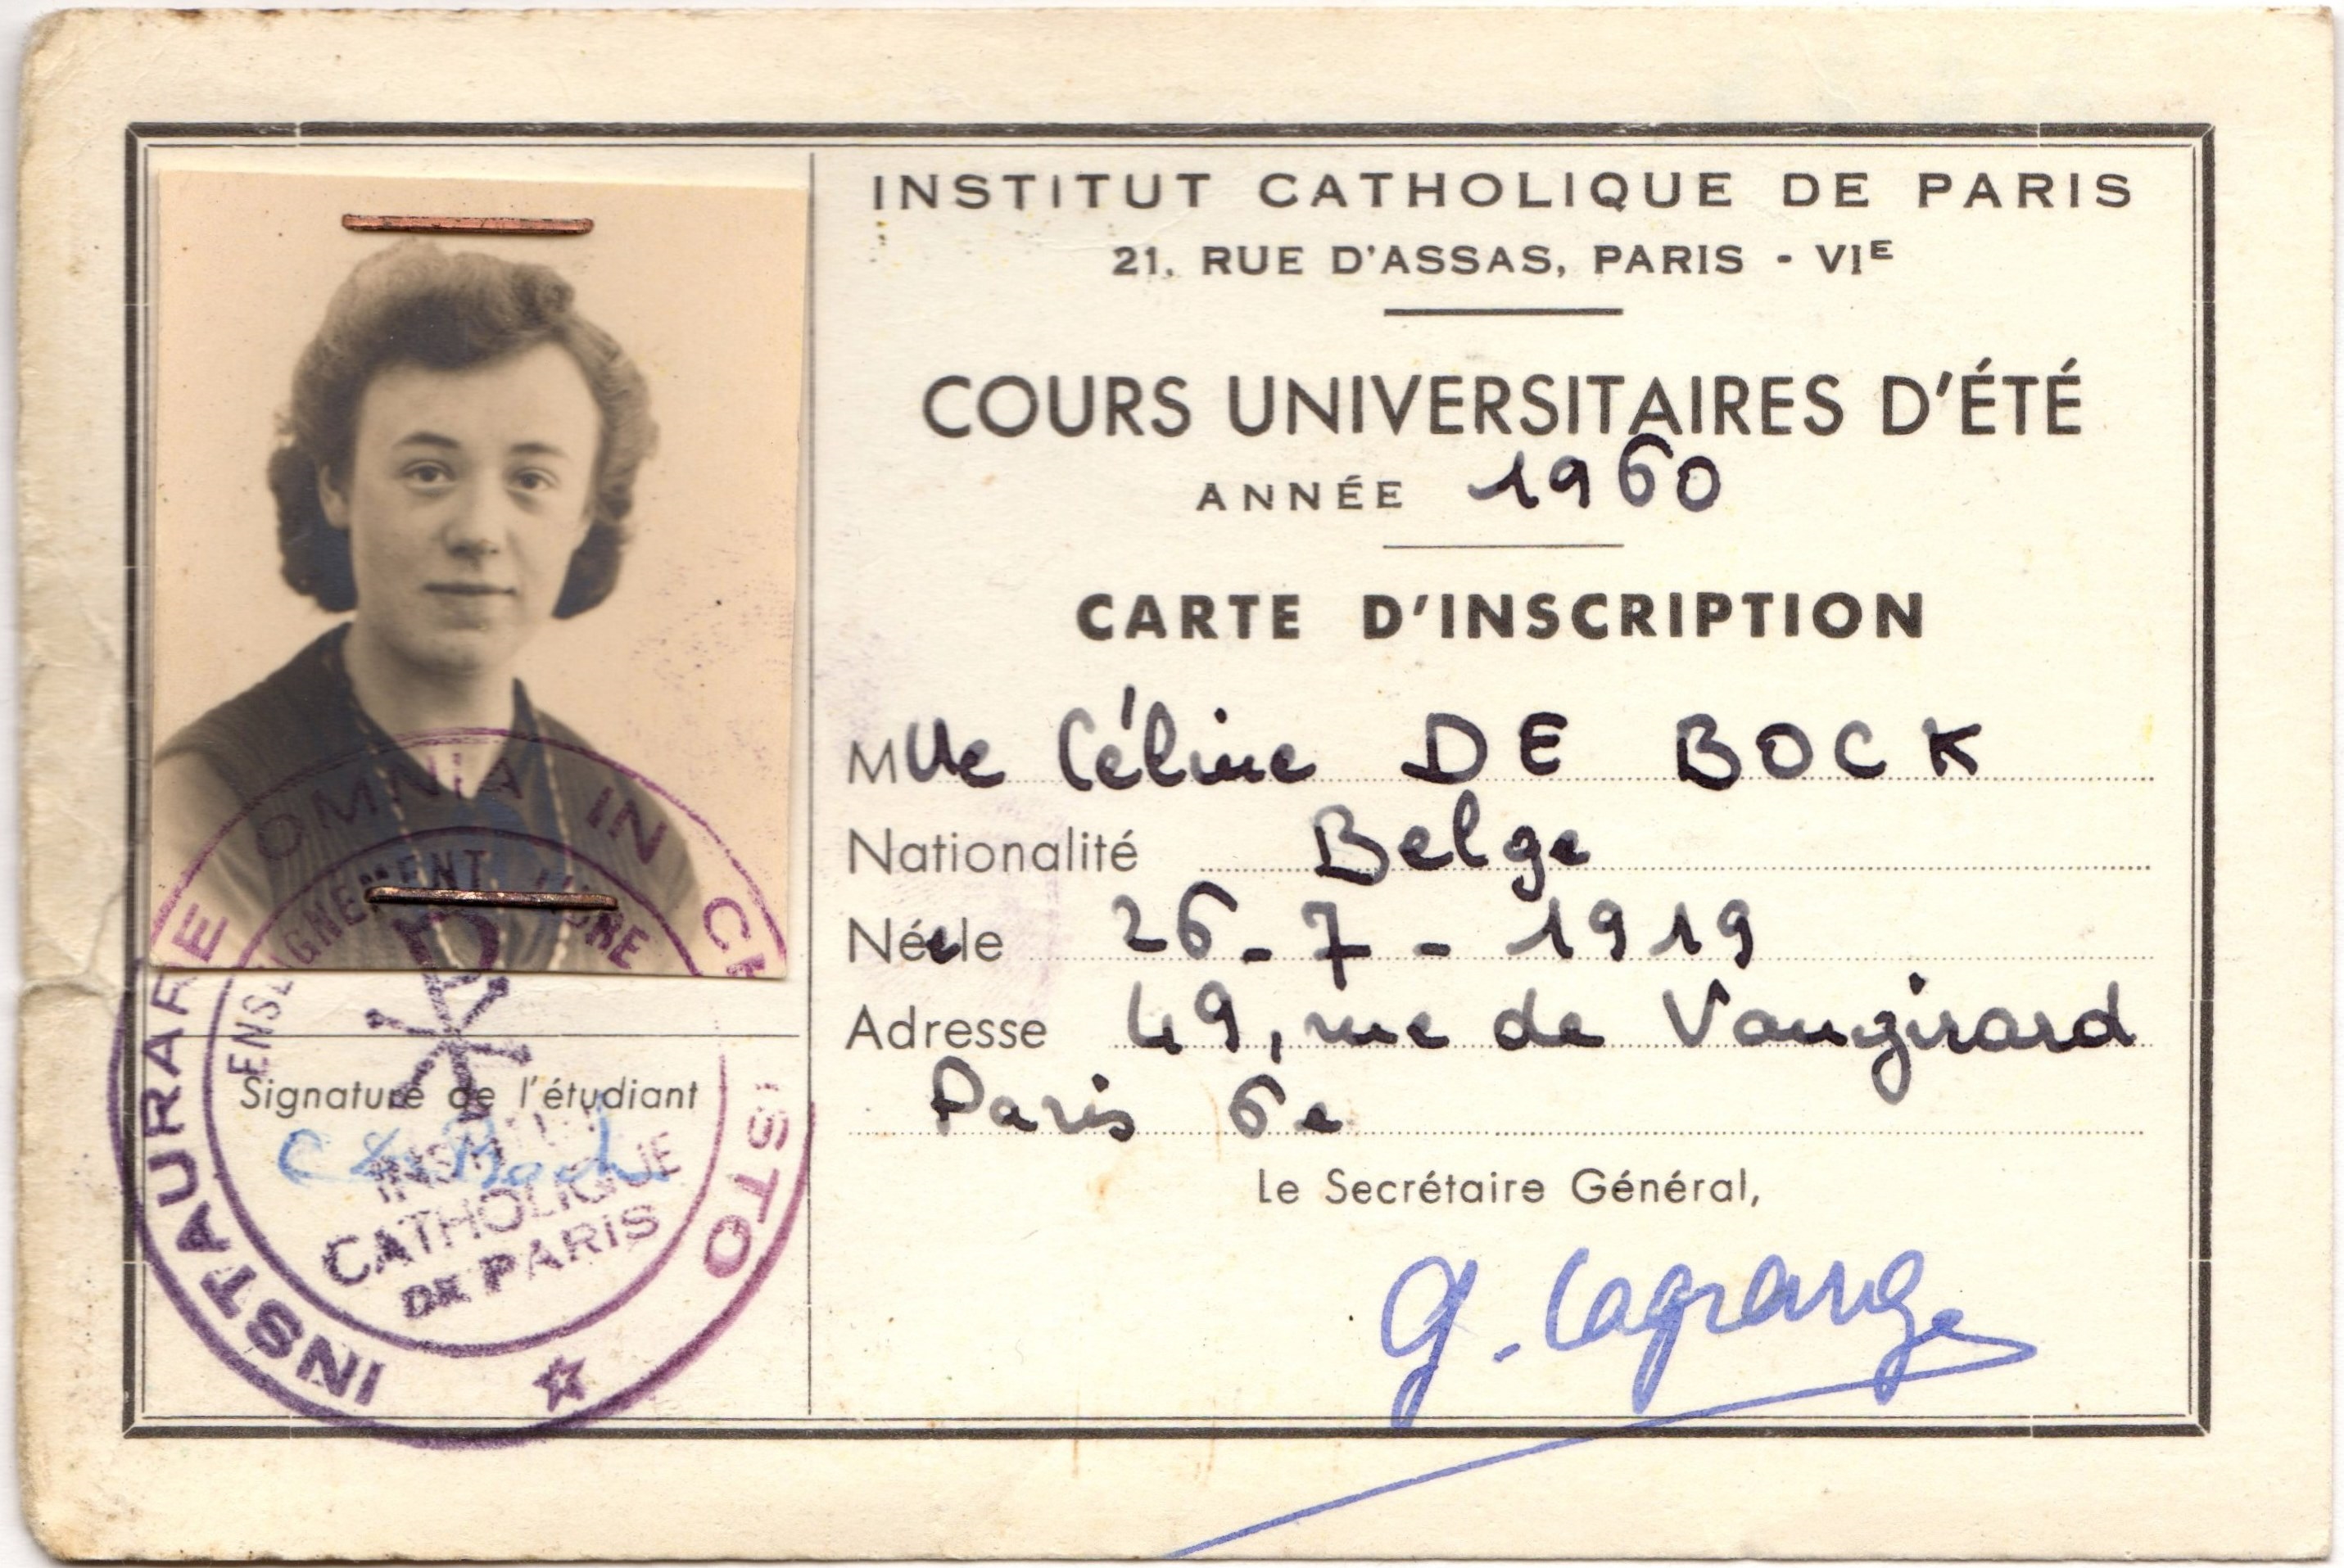 INSTITUT CATHOLIQUE DE PARIS
21, RUE D'ASSAS, PARIS - VIE
COURS UNIVERSITAIRES D'ÉTÉ
ANNÉE 1960
CARTE D'INSCRIPTION
Mlle Céline DE BOCK
Nationalité Belge
Née le 26-7-1919
Adresse 49, rue de Vaugirard
Paris 6e
Le Secrétaire Général,
G. Lagrange
Signature de l'étudiant
C De Bock
INSTAURARE OMNIA IN CHRISTO
ENSEIGNEMENT
INSTITUT
CATHOLIQUE
DE PARIS